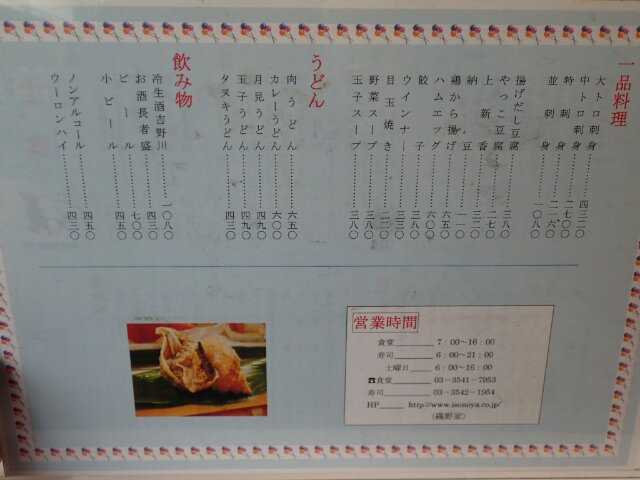 一品料理
大トロ刺身……四三二〇
中トロ刺身……二七〇〇
特刺身……二一六〇
並刺身……一〇八〇
揚げだし豆腐……三八〇
やっこ豆腐……二七〇
上新香……三二〇
納豆……一一〇
鶏から揚げ……六五〇
ハムエッグ……六〇〇
餃子……三八〇
ウインナー……三三〇
目玉焼き……二二〇
野菜スープ……三八〇
玉子スープ……三八〇
うどん
肉うどん……六五〇
カレーうどん……六〇〇
月見うどん……四九〇
玉子うどん……四九〇
タヌキうどん……四三〇
飲み物
冷生酒吉野川……一〇八〇
お酒長者盛……四三〇
ビール……七〇〇
小ビール……四五〇
ノンアルコール……四五〇
ウーロンハイ……四三〇
営業時間
食堂______ 7:00～16:00
寿司______ 6:00～21:00
土曜日____ 6:00～16:00
☎食堂______ 03-3541-7953
寿司______ 03-3542-1954
HP____ http://www.isonoya.co.jp/
(磯野家)